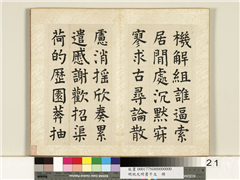 機解組誰逼索
居閒處沉默寂
寥求古尋論散
慮消搖欣奏累
遣慼謝歡招渠
荷的歷園莽抽
21